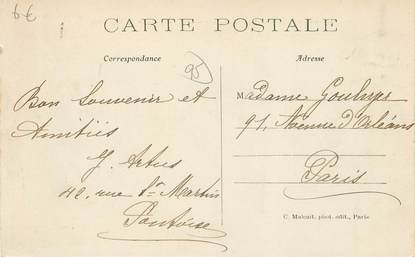 6€
CARTE POSTALE
Correspondance
Adresse
95
Bon Souvenir et
Amitiés
42, rue St Martin
Pontoise
Madame
91, Avenue d'Orléans
Paris
C. Malcuit, phot. édit., Paris